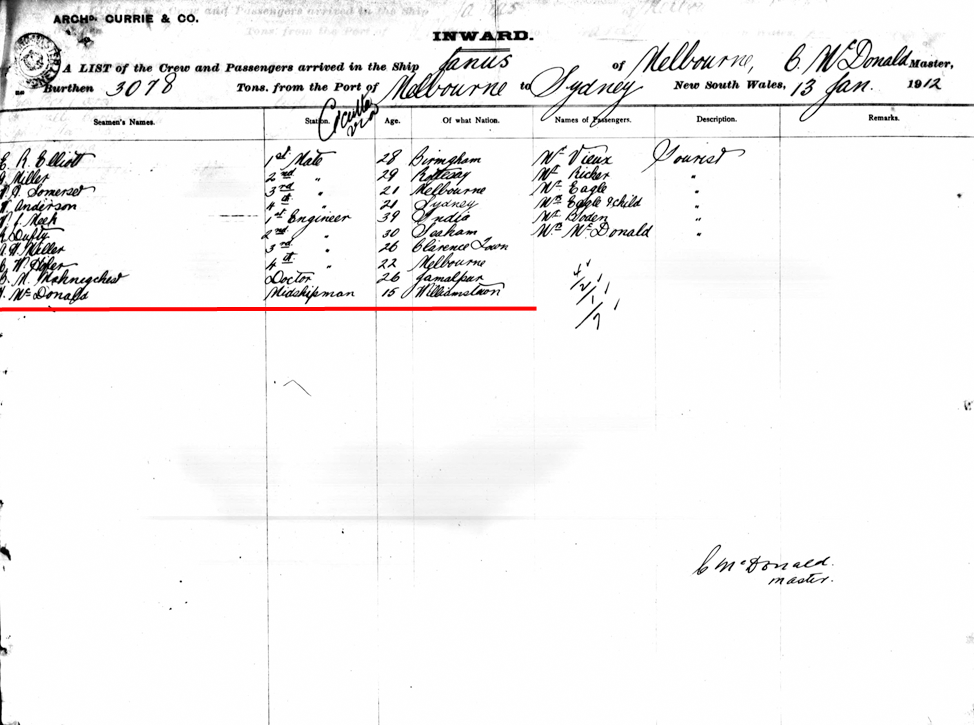 ARCHD. CURRIE & CO.
INWARD.
A LIST of the Crew and Passengers arrived in the Ship Janus of Melbourne, C McDonald Master,
Burthen 3078 Tons. from the Port of Melbourne to Sydney New South Wales, 13 Jan. 1912
Seamen's Names. Station. Age. Of what Nation. Names of Passengers. Description. Remarks.
E. R. Elliott 1st Mate 28 Birmgham Mr Vieux Tourist
Miller 2nd " 29 Rothesay Mr Richer "
Somerset 3rd " 21 Melbourne Mr Eagle "
Anderson 4th " 21 Sydney Mrs Eagle & child "
Meek 1st Engineer 39 India Mr Boden "
Dufty 2nd " 30 Seaham Mrs McDonald "
Miller 3rd " 26 Clarence Town
4th " 22 Melbourne
Doctor 26 Jamalpur
McDonald Midshipman 15 Williamstown
C McDonald.
master.